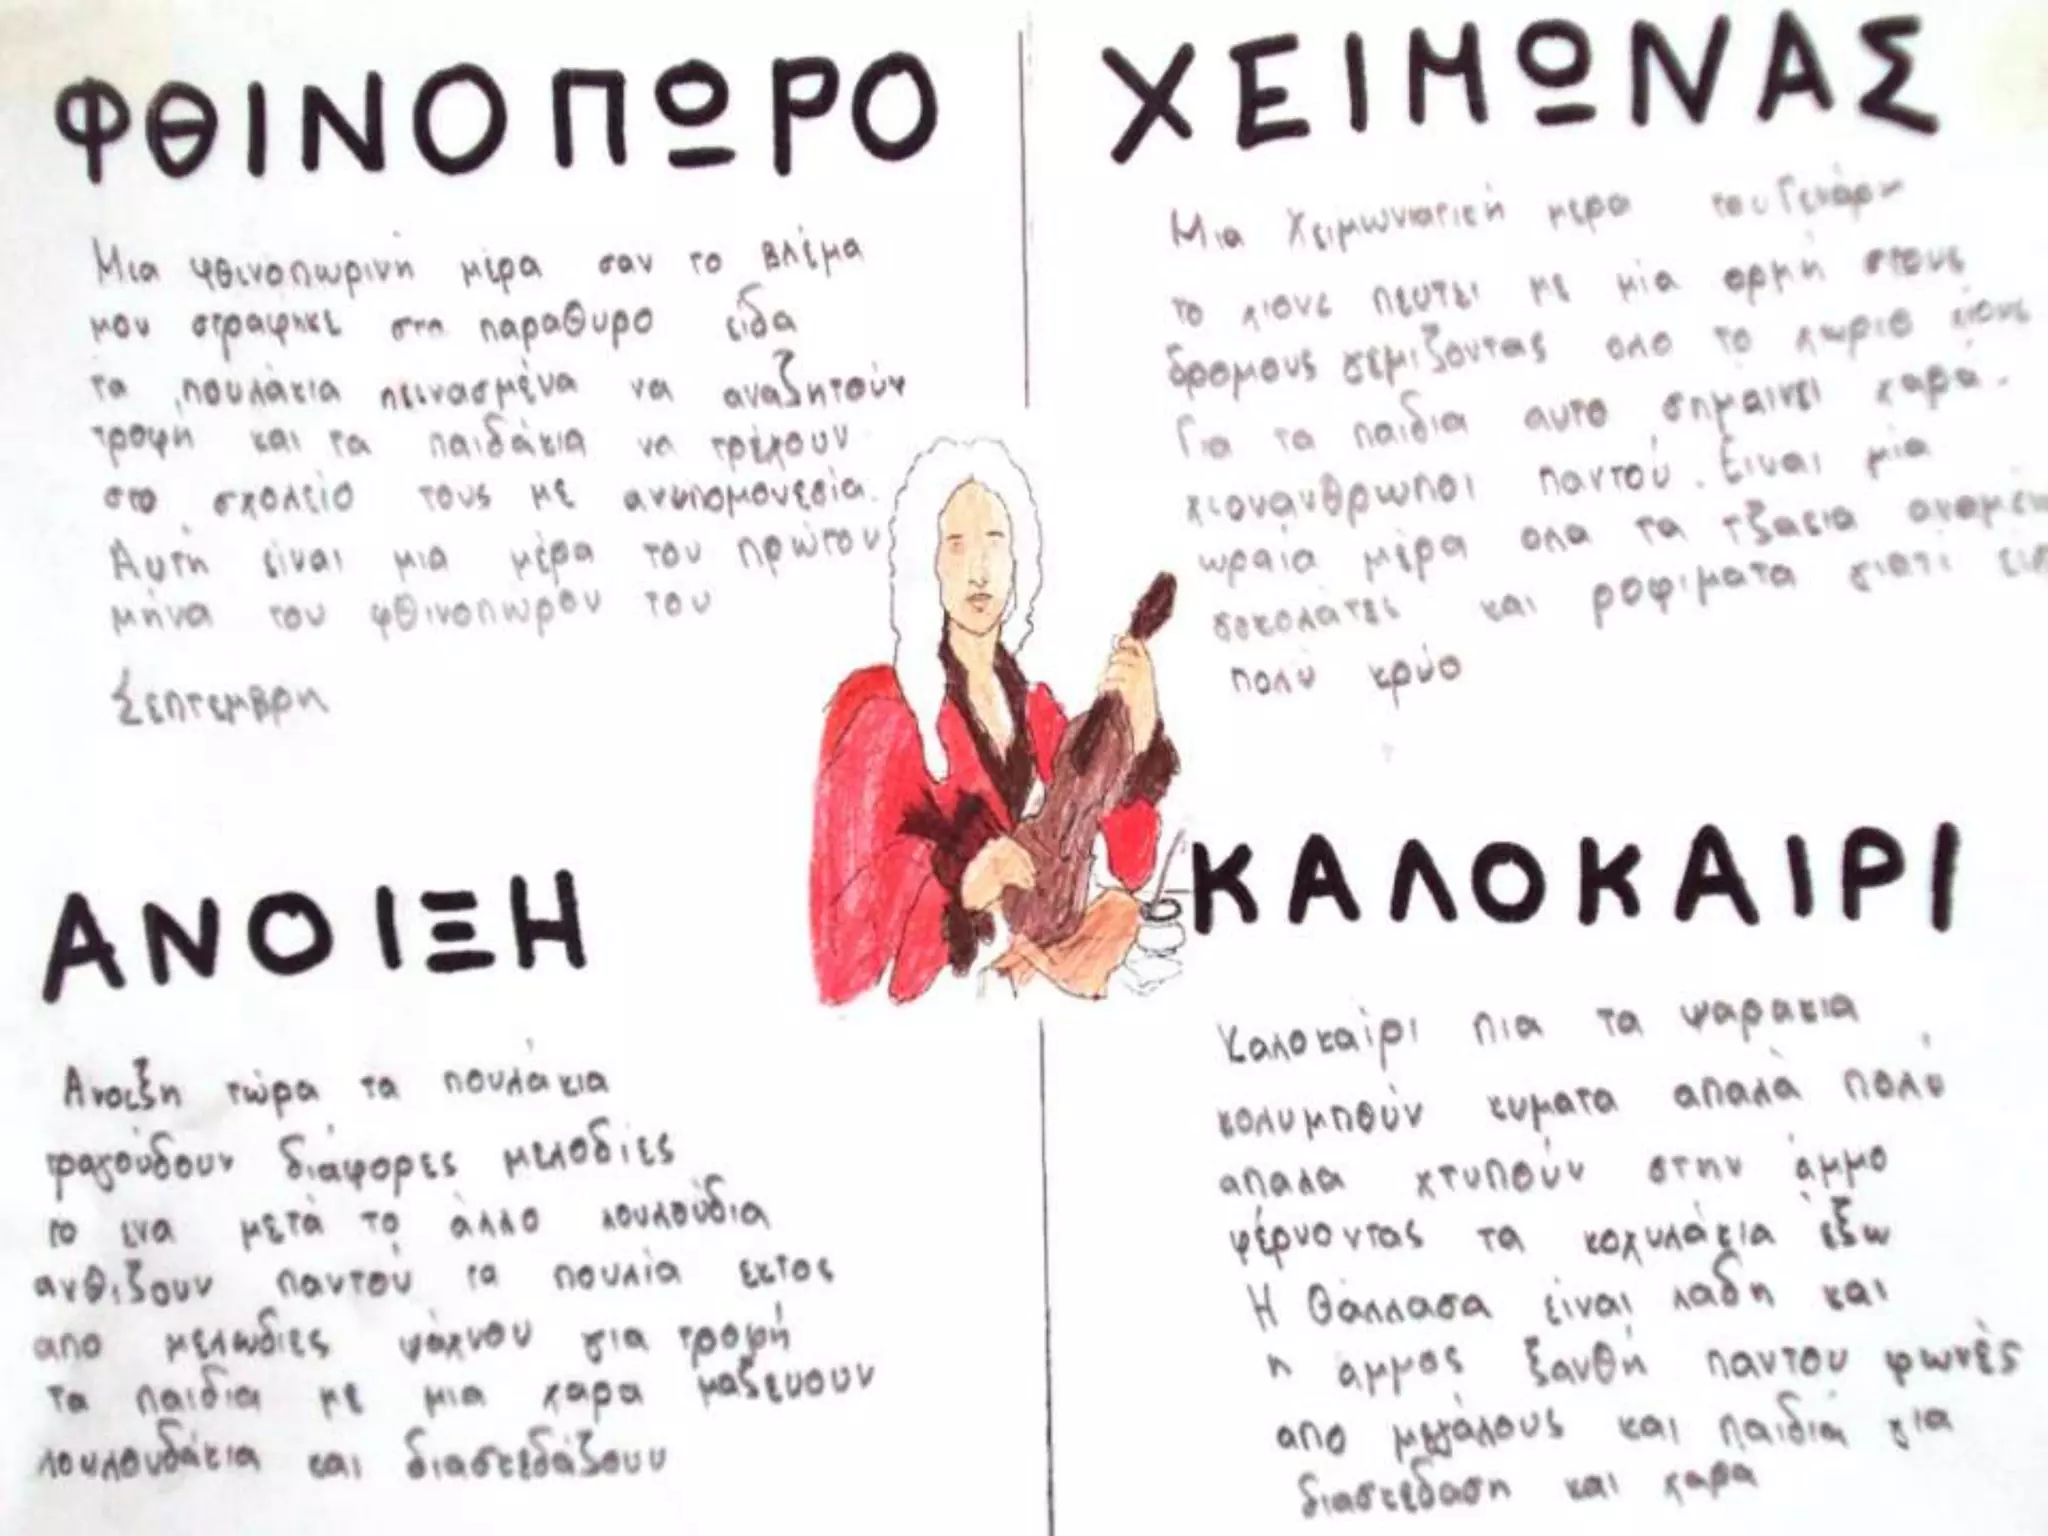 ΦΘΙΝΟΠΩΡΟ
Μια φθινοπωρινή μέρα σαν το βλέμα
μου στραφηκε στη παραθυρο είδα
τα πουλάκια πεινασμένα να αναζητούν
τροφή και τα παιδάκια να τρέχουν
στο σχολείο τους με ανυπομονεσία.
Αυτή είναι μια μέρα του πρώτου
μήνα του φθινοπωρου του
Σεπτεμβρη
ΧΕΙΜΩΝΑΣ
Μια Χειμωνιατική μερα του Γενάρη
το χιονι πευτει με μία ορμή στους
δρομους γεμιζοντας ολο το χωριο χίονι
Για τα παιδια αυτο σημαινει χαρά.
χιονανθρωποι παντού. Ειναι μία
ωραία μέρα ολα τα τζακια
σοκολάτες και ροφιματα γιατί
πολύ κρύο
ΑΝΟΙΞΗ
Ανοιξη τώρα τα πουλάκια
τραγούδουν διάφορες μελοδίες
το ενα μετά το άλλο λουλούδια
ανθιζουν παντού τα πουλία εκτος
απο μελωδιες ψάχνου για τροφή
τα παιδια με μια χαρα μαζευουν
λουλουδάκια και διασκεδάζουν
ΚΑΛΟΚΑΙΡΙ
Καλοκαίρι πια τα ψαρακια
κολυμπούν κυματα απαλά πολύ
απαλα χτυπούν στην άμμο
φέρνοντας τα κοχυλάκια έξω
Η θάλλασα είναι λαδη και
η άμμος ξανθή παντου φωνές
απο μεγάλους και παιδιά για
διασκεδαση και χαρα